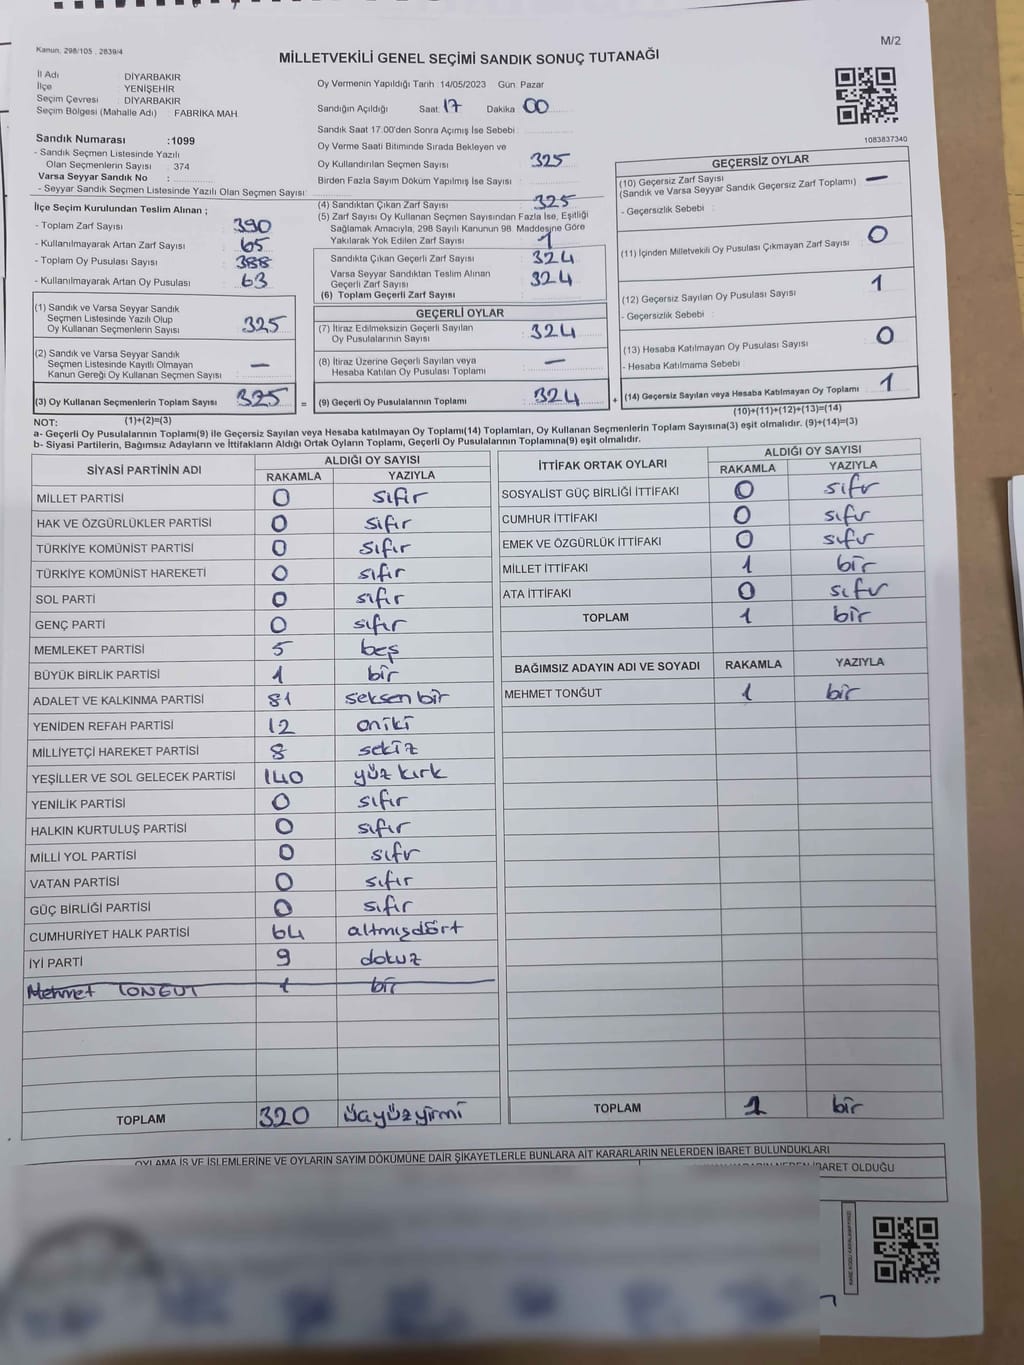 Kanun. 298/105 , 2839/4
M/2
MİLLETVEKİLİ GENEL SEÇİMİ SANDIK SONUÇ TUTANAĞI
İl Adı DİYARBAKIR
İlçe YENİŞEHİR
Seçim Çevresi DİYARBAKIR
Seçim Bölgesi (Mahalle Adı) FABRİKA MAH.
Sandık Numarası :1099
- Sandık Seçmen Listesinde Yazılı
Olan Seçmenlerin Sayısı : 374
Varsa Seyyar Sandık No :
- Seyyar Sandık Seçmen Listesinde Yazılı Olan Seçmen Sayısı:
Oy Vermenin Yapıldığı Tarih 14/05/2023 Gün Pazar
Sandığın Açıldığı Saat 17 Dakika 00
Sandık Saat 17.00'den Sonra Açımış İse Sebebi
Oy Verme Saati Bitiminde Sırada Bekleyen ve
Oy Kullandırılan Seçmen Sayısı : 325
Birden Fazla Sayım Döküm Yapılmış İse Sayısı :
1083837340
İlçe Seçim Kurulundan Teslim Alınan ;
- Toplam Zarf Sayısı : 390
- Kullanılmayarak Artan Zarf Sayısı : 65
- Toplam Oy Pusulası Sayısı : 388
- Kullanılmayarak Artan Oy Pusulası : 63
(1) Sandık ve Varsa Seyyar Sandık
Seçmen Listesinde Yazılı Olup
Oy Kullanan Seçmenlerin Sayısı : 325
(2) Sandık ve Varsa Seyyar Sandık
Seçmen Listesinde Kayıtlı Olmayan
Kanun Gereği Oy Kullanan Seçmen Sayısı : —
(3) Oy Kullanan Seçmenlerin Toplam Sayısı : 325 =
(4) Sandıktan Çıkan Zarf Sayısı : 325
(5) Zarf Sayısı Oy Kullanan Seçmen Sayısından Fazla İse, Eşitliği
Sağlamak Amacıyla, 298 Sayılı Kanunun 98. Maddesine Göre
Yakılarak Yok Edilen Zarf Sayısı : 1
Sandıkta Çıkan Geçerli Zarf Sayısı : 324
Varsa Seyyar Sandıktan Teslim Alınan
Geçerli Zarf Sayısı : 324
(6) Toplam Geçerli Zarf Sayısı :
GEÇERLİ OYLAR
(7) İtiraz Edilmeksizin Geçerli Sayılan
Oy Pusulalarının Sayısı : 324
(8) İtiraz Üzerine Geçerli Sayılan veya
Hesaba Katılan Oy Pusulası Toplamı : —
(9) Geçerli Oy Pusulalarının Toplamı : 324 +
GEÇERSİZ OYLAR
(10) Geçersiz Zarf Sayısı : —
(Sandık ve Varsa Seyyar Sandık Geçersiz Zarf Toplamı)
- Geçersizlik Sebebi :
(11) İçinden Milletvekili Oy Pusulası Çıkmayan Zarf Sayısı : 0
(12) Geçersiz Sayılan Oy Pusulası Sayısı : 1
- Geçersizlik Sebebi :
(13) Hesaba Katılmayan Oy Pusulası Sayısı : 0
- Hesaba Katılmama Sebebi :
(14) Geçersiz Sayılan veya Hesaba Katılmayan Oy Toplamı : 1
NOT: (1)+(2)=(3) (10)+(11)+(12)+(13)=(14)
a- Geçerli Oy Pusulalarının Toplamı(9) ile Geçersiz Sayılan veya Hesaba katılmayan Oy Toplamı(14) Toplamları, Oy Kullanan Seçmenlerin Toplam Sayısına(3) eşit olmalıdır. (9)+(14)=(3)
b- Siyasi Partilerin, Bağımsız Adayların ve İttifakların Aldığı Ortak Oyların Toplamı, Geçerli Oy Pusulalarının Toplamına(9) eşit olmalıdır.
SİYASİ PARTİNİN ADI ALDIĞI OY SAYISI
RAKAMLA YAZIYLA
MİLLET PARTİSİ 0 sıfır
HAK VE ÖZGÜRLÜKLER PARTİSİ 0 sıfır
TÜRKİYE KOMÜNİST PARTİSİ 0 sıfır
TÜRKİYE KOMÜNİST HAREKETİ 0 sıfır
SOL PARTİ 0 sıfır
GENÇ PARTİ 0 sıfır
MEMLEKET PARTİSİ 5 beş
BÜYÜK BİRLİK PARTİSİ 1 bir
ADALET VE KALKINMA PARTİSİ 81 seksen bir
YENİDEN REFAH PARTİSİ 12 oniki
MİLLİYETÇİ HAREKET PARTİSİ 8 sekiz
YEŞİLLER VE SOL GELECEK PARTİSİ 140 yüz kırk
YENİLİK PARTİSİ 0 sıfır
HALKIN KURTULUŞ PARTİSİ 0 sıfır
MİLLİ YOL PARTİSİ 0 sıfır
VATAN PARTİSİ 0 sıfır
GÜÇ BİRLİĞİ PARTİSİ 0 sıfır
CUMHURİYET HALK PARTİSİ 64 altmışdört
İYİ PARTİ 9 dokuz
Mehmet TONGUT 1 bir
TOPLAM 320 üçyüzyirmi
İTTİFAK ORTAK OYLARI ALDIĞI OY SAYISI
RAKAMLA YAZIYLA
SOSYALİST GÜÇ BİRLİĞİ İTTİFAKI 0 sıfır
CUMHUR İTTİFAKI 0 sıfır
EMEK VE ÖZGÜRLÜK İTTİFAKI 0 sıfır
MİLLET İTTİFAKI 1 bir
ATA İTTİFAKI 0 sıfır
TOPLAM 1 bir
BAĞIMSIZ ADAYIN ADI VE SOYADI RAKAMLA YAZIYLA
MEHMET TONĞUT 1 bir
TOPLAM 1 bir
OYLAMA İŞ VE İŞLEMLERİNE VE OYLARIN SAYIM DÖKÜMÜNE DAİR ŞİKAYETLERLE BUNLARA AİT KARARLARIN NELERDEN İBARET BULUNDUKLARI
İBARET OLDUĞU